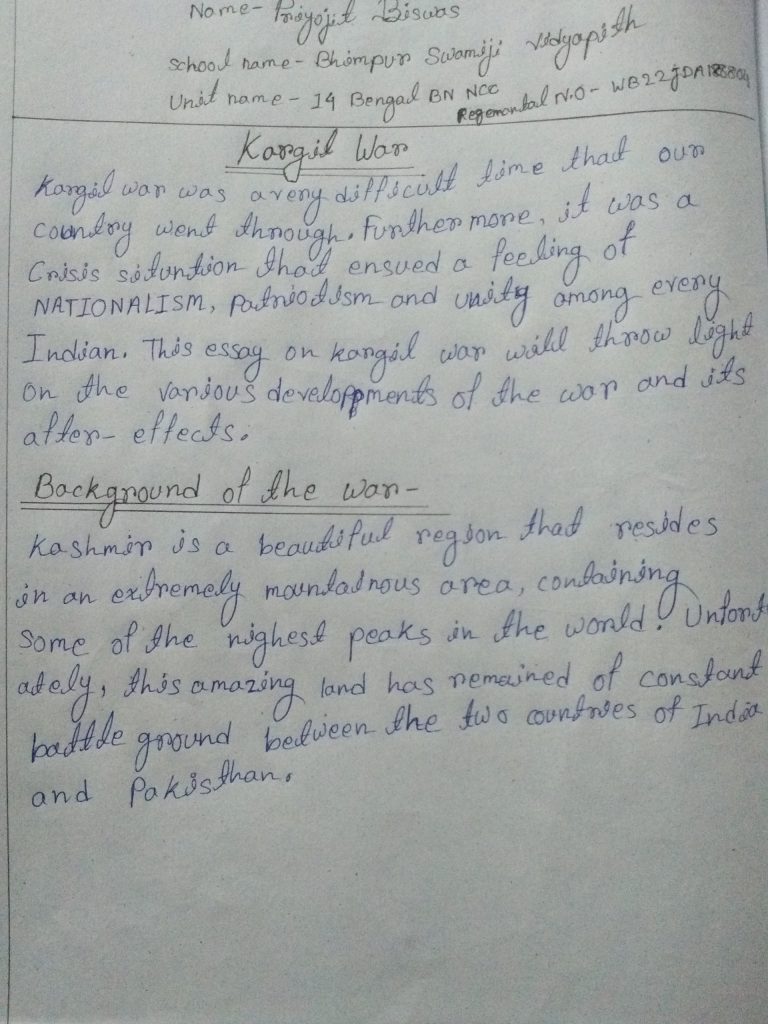 Name- Priyojit Biswas
School name- Bhimpur Swamiji Vidyapith
Unit name - 14 Bengal BN NCC
Regemantal N.O- WB22JDA188804
Kargil War
Kargil war was a very difficult time that our
country went through. Furthermore, it was a
Crisis situntion that ensued a feeling of
NATIONALISM, Patriotism and unity among every
Indian. This essay on kargil war will throw light
on the various developpments of the war and its
after-effects.
Background of the war-
Kashmir is a beautiful region that resides
in an extremely mountainous area, containing
some of the highest peaks in the world! Unfort
ately, this amazing land has remained of constant
battle ground between the two countries of India
and Pakisthan.